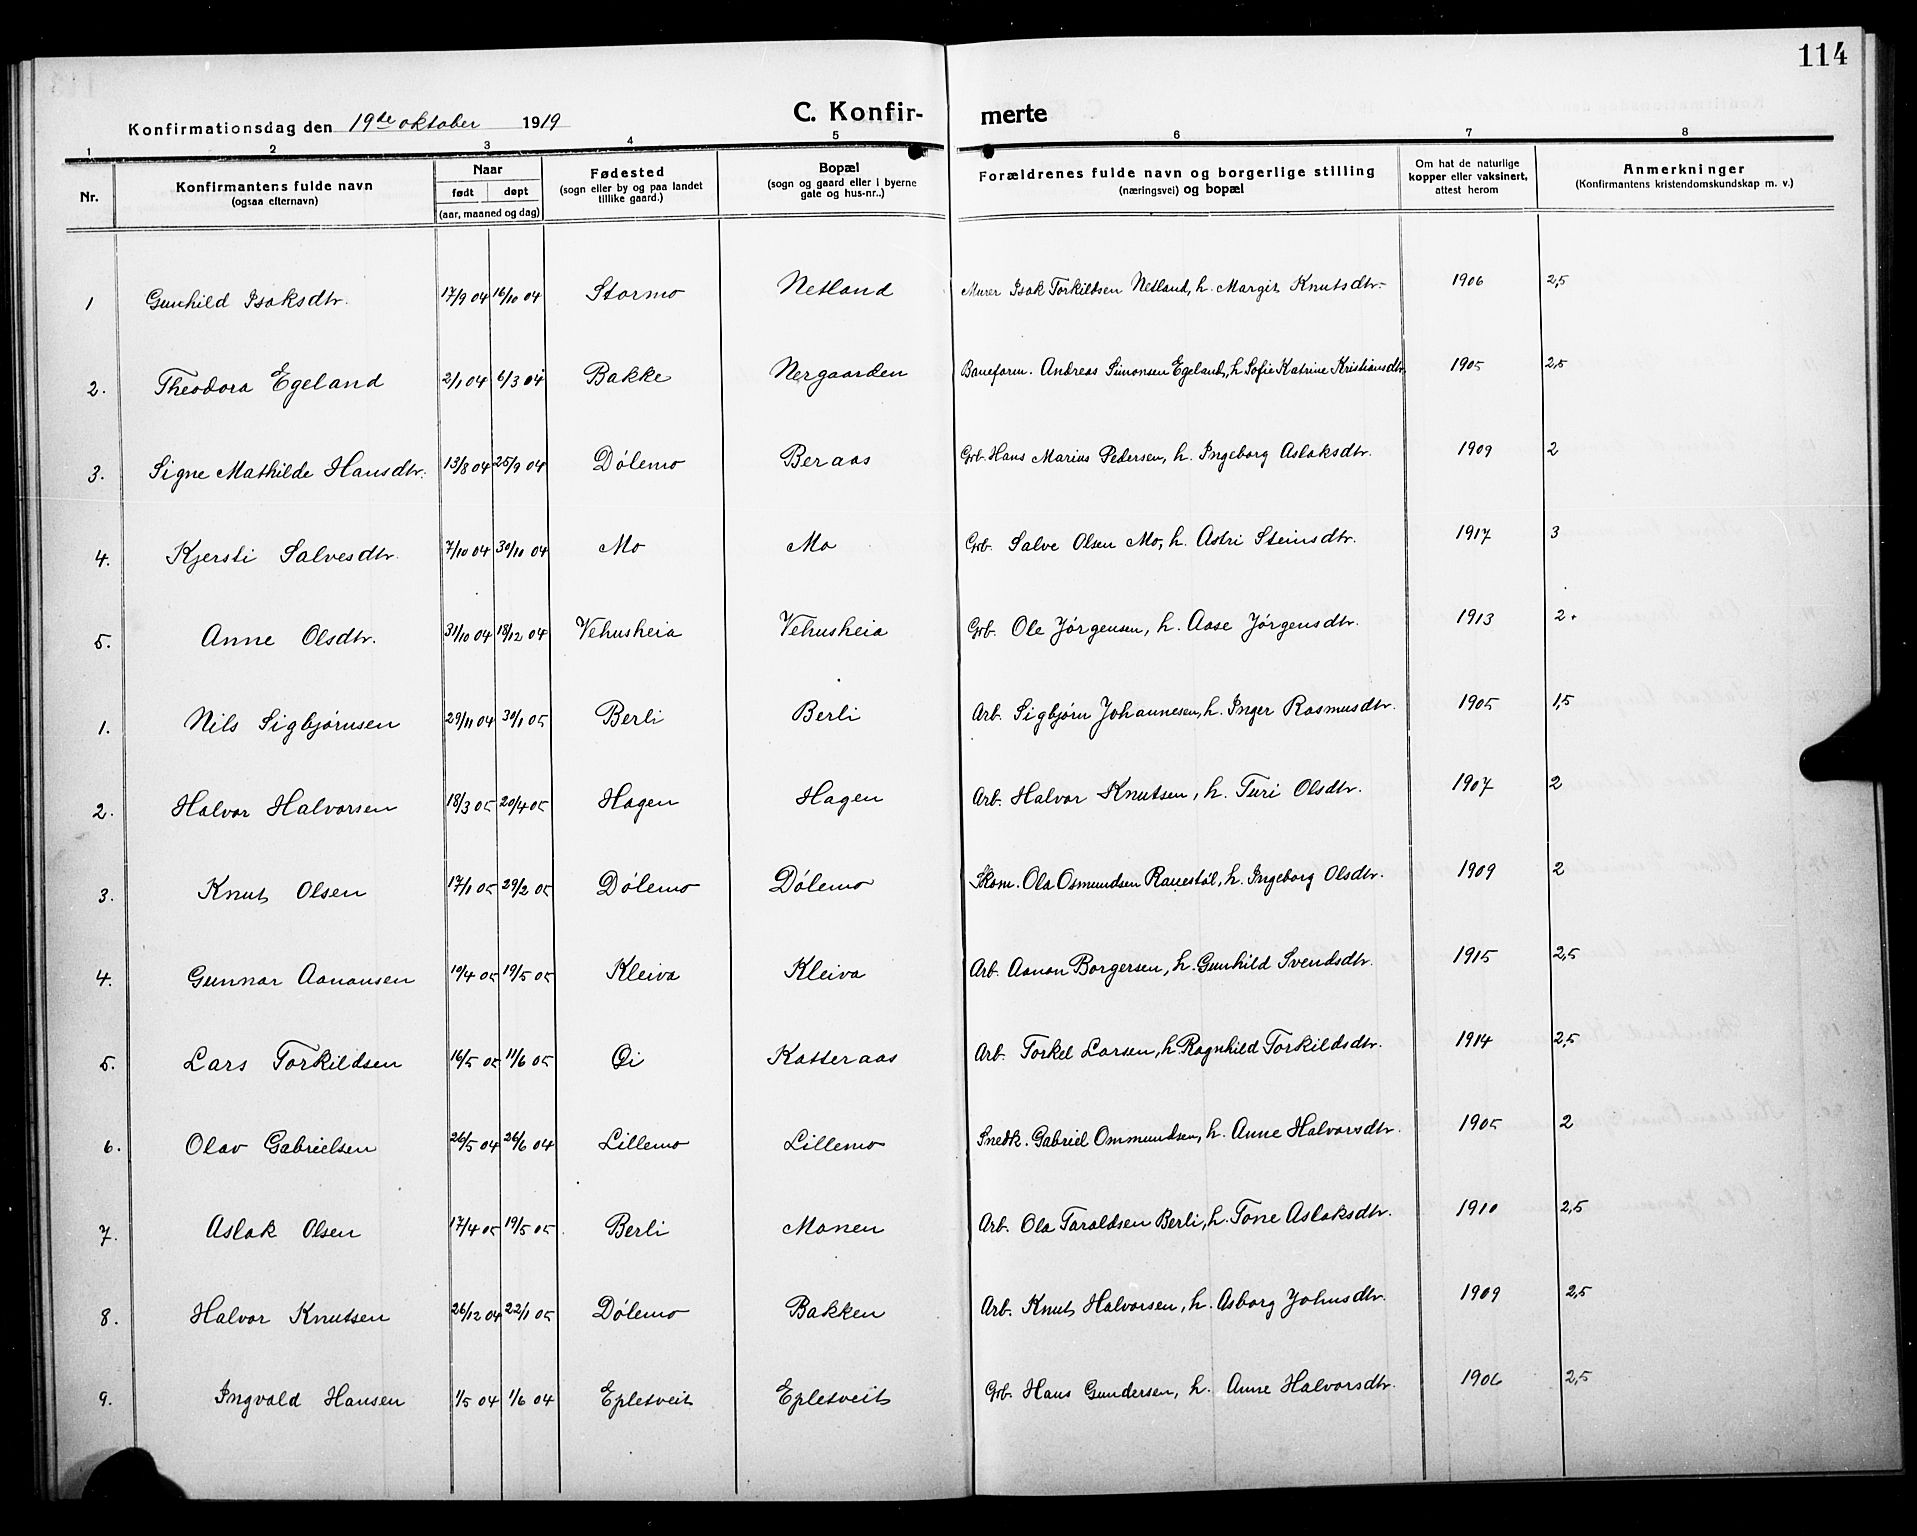 114
C. Konfir- merte
Konfirmationsdag den 19de oktober 1919
1 2 3 4 5 6 7 8
Nr. Konfirmantens fulde navn (ogsaa efternavn) Naar født døpt (aar, maaned og dag) Fødested (sogn eller by og paa landet tillike gaard.) Bopæl (sogn og gaard eller i byerne gate og hus-nr..) Forældrenes fulde navn og borgerlige stilling (næringsvei) og bopæl Om hat de naturlige kopper eller vaksinert, attest herom Anmerkninger (Konfirmantens kristendomskundskap m. v.)
1 Gunhild Isaksdtr. 17/9 04 16/10 04 Stormo Netland Murer Isak Torkildsen Netland, h. Margit Knutsdtr. 1906 2,5
2. Theodora Egeland 2/1 04 6/3 04 Bakke Nergaarden Baneform. Andreas Simonsen Egeland, h Sofie Katrine Kristiansdtr. 1905 2,5
3. Signe Mathilde Hansdtr. 13/8 04 25/9 04 Dölemo Beraas Grb. Hans Marius Pedersen, h. Ingeborg Aslaksdtr. 1909 2
4. Kjersti Salvesdtr. 7/10 04 30/10 04 Mo Mo Grb. Salve Olsen Mo, h. Astri Steinsdtr. 1917 3
5. Anne Olsdtr. 31/10 04 18/12 04 Vehusheia Vehusheia Grb. Ole Jörgensen, h. Aase Jörgensdtr. 1913 2.
1. Nils Sigbjørnsen 29/11 04 30/1 05 Berli Berli Arb. Sigbjørn Johannesen, h. Inger Rasmusdtr. 1905 1,5
2. Halvor Halvorsen 18/3 05 20/4 05 Hagen Hagen Arb. Halvor Knutsen, h. Turi Olsdtr. 1907 2
3. Knut Olsen 17/1 05 29/2 05 Dölemo Dölemo Skom. Ola Osmundsen Rauestöl, h. Ingeborg Olsdtr. 1909 2
4. Gunnar Aanonsen 10/4 05 19/5 05 Kleiva Kleiva Arb. Aanon Borgersen, h. Gunhild Svendsdtr. 1915 2,5
5. Lars Torkildsen 16/5 05 11/6 05 Øi Katteraas Arb. Torkel Larsen, h. Ragnhild Torkildsdtr. 1914 2,5
6. Olav Gabrielsen 26/5 04 26/6 04 Lillemo Lillemo Snedk. Gabriel Ommundsen, h. Anne Halvorsdtr. 1905 2
7. Aslak Olsen 17/4 05 19/5 05 Berli Monen Arb. Ola Taraldsen Berli, h. Tone Aslaksdtr. 1910 2,5
8. Halvor Knutsen 26/12 04 22/1 05 Dölemo Bakken Arb. Knut Halvorsen, h. Asborg Johnsdtr. 1909 2,5
9. Ingvald Hansen 1/5 04 1/6 04 Epletveit Epletveit Grb. Hans Gundersen, h. Anne Halvorsdtr. 1906 2,5